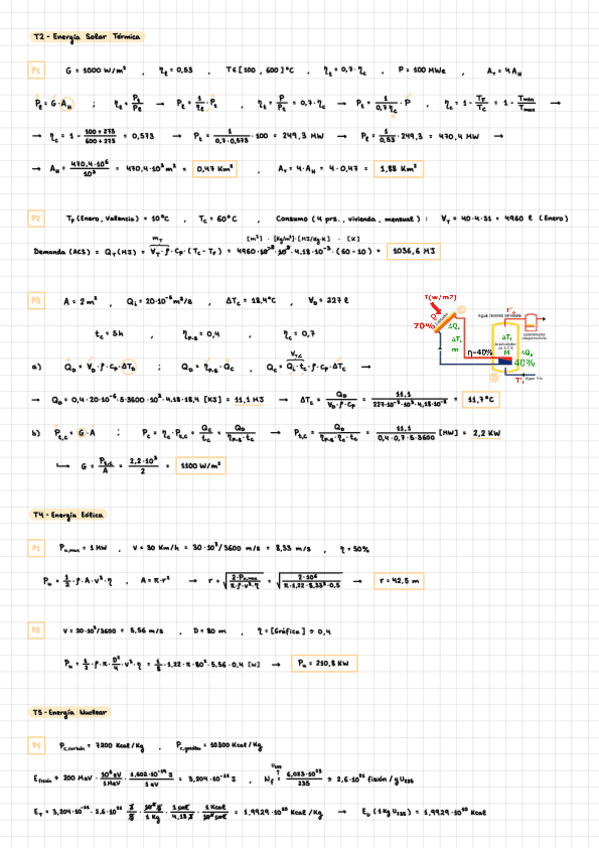 T2 - Energía Solar Térmica
P1 G = 1000 W/m² , ηₑ = 0,53 , T∈[100 , 600]°C , ηₜ = 0,7·η꜀ , P = 100 MWe , Aᴛ = 4Aʜ
Pₑ = G·Aʜ ; ηₑ = Pₜ/Pₑ → Pₑ = 1/ηₑ · Pₜ , ηₜ = P/Pₜ = 0,7·η꜀ → Pₜ = 1/(0,7η꜀) · P , η꜀ = 1 - Tꜰ/T꜀ = 1 - Tmin/Tmax →
→ η꜀ = 1 - (100 + 273)/(600 + 273) = 0,573 → Pₜ = 1/(0,7·0,573) · 100 = 249,3 MW → Pₑ = 1/0,53 · 249,3 = 470,4 MW →
→ Aʜ = 470,4·10⁶/10³ = 470,4·10³ m² = 0,47 Km² , Aᴛ = 4·Aʜ = 4·0,47 = 1,88 Km²
P2 Tꜰ (Enero, Valencia) = 10°C , T꜀ = 60°C , Consumo (4 prs., vivienda, mensual) : Vᴛ = 40·4·31 = 4960 ℓ (Enero)
mᴛ [m³] · [Kg/m³]·[MJ/Kg·K] · [K]
Demanda (ACS) = Qᴛ (MJ) = Vᴛ·ρ·Cp·(T꜀ - Tꜰ) = 4960·10⁻³·10³·4,18·10⁻³·(60 - 10) = 1036,6 MJ
P3 A = 2 m² , Qᵢ = 20·10⁻⁶ m³/s , ΔT꜀ = 18,4°C , Vᴅ = 227 ℓ
t꜀ = 5h , ηp.s = 0,4 , η꜀ = 0,7
I(w/m2)
70%
Agua caliente sanitaria
ΔTₜ
M
η=40%
40%
Agua fría
a) Qᴅ = Vᴅ·ρ·Cp·ΔTᴅ ; Qᴅ = ηp.s·Q꜀ , Q꜀ = Qᵢ·t꜀·ρ·Cp·ΔT꜀ →
→ Qᴅ = 0,4·20·10⁻⁶·5·3600·10³·4,18·18,4 [KJ] = 11,1 MJ → ΔT꜀ = Qᴅ/(Vᴅ·ρ·Cp) = 11,1/(227·10⁻³·10³·4,18·10⁻³) = 11,7°C
b) Pₑ,꜀ = G·A ; P꜀ = η꜀·Pₑ,꜀ = Q꜀/t꜀ = Qᴅ/(ηp.s·t꜀) → Pₑ,꜀ = Qᴅ/(ηp.s·η꜀·t꜀) = 11,1/(0,4·0,7·5·3600) [MW] = 2,2 kW
↳ G = Pₑ,꜀/A = 2,2·10³/2 = 1100 W/m²
T4 - Energía Eólica
P1 Pᵤ,max = 1 MW , V = 30 Km/h = 30·10³/3600 m/s = 8,33 m/s , η = 50%
Pᵤ = 1/2·ρ·A·v³·η , A = π·r² → r = √(2·Pᵤ,max/(π·ρ·v³·η)) = √(2·10⁶/(π·1,22·8,33³·0,5)) → r = 42,5 m
P2 V = 20·10³/3600 = 5,56 m/s , D = 80 m , η = [Gráfica] ≈ 0,4
Pᵤ = 1/2·ρ·π·D²/4·v³·η = 1/8·1,22·π·80²·5,56·0,4 [W] → Pᵤ = 210,8 KW
T5 - Energía Nuclear
P1 P꜀,carbón = 7200 Kcal/Kg , P꜀,petróleo = 10300 Kcal/Kg
Efisión = 200 MeV · 10⁶ eV/1 MeV · 1,602·10⁻¹⁹ J/1 eV = 3,204·10⁻¹¹ J , Nf = 6,023·10²³/235 = 2,6·10²¹ fisión/g U₂₃₅
Eᴛ = 3,204·10⁻¹¹ · 2,6·10²¹ J/g · 10³ g/1 Kg · 1 cal/4,18 J · 1 Kcal/10³ cal = 1,9929·10¹⁰ Kcal/Kg → Eᵤ (1 Kg U₂₃₅) = 1,9929·10¹⁰ Kcal